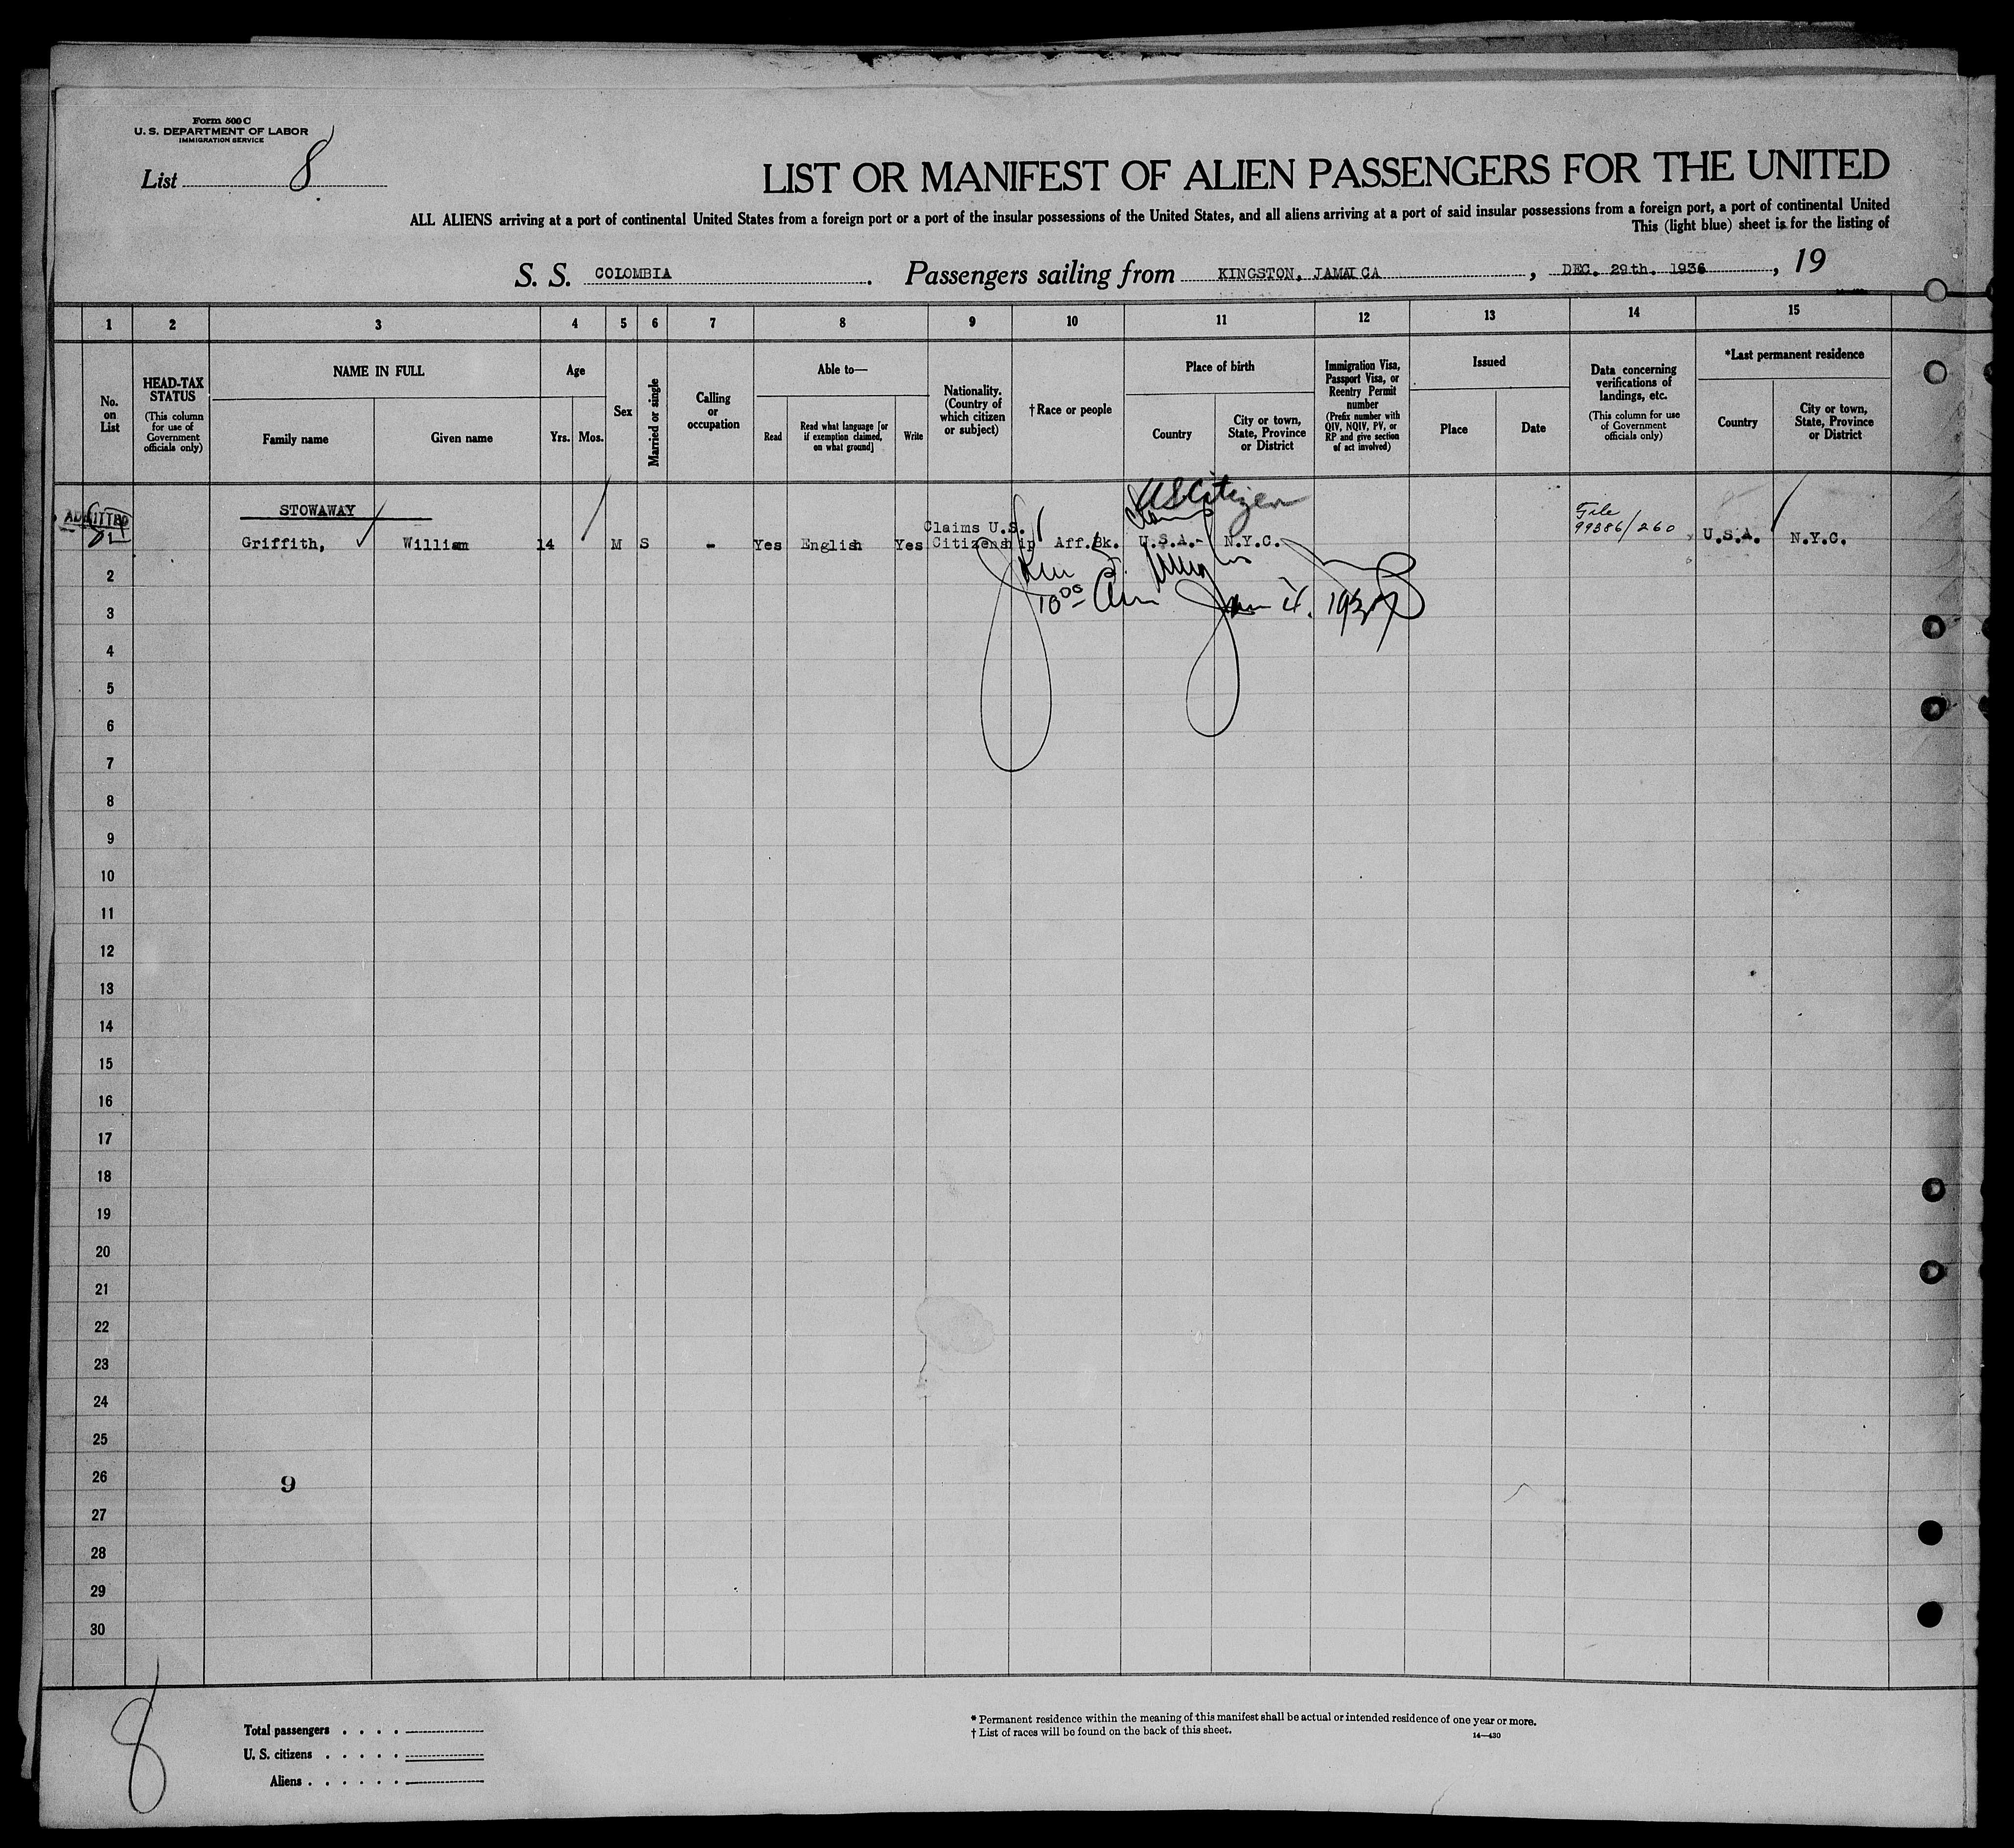 Form 500 C
U. S. DEPARTMENT OF LABOR
IMMIGRATION SERVICE
List 8
LIST OR MANIFEST OF ALIEN PASSENGERS FOR THE UNITED
ALL ALIENS arriving at a port of continental United States from a foreign port or a port of the insular possessions of the United States, and all aliens arriving at a port of said insular possessions from a foreign port, a port of continental United
This (light blue) sheet is for the listing of
S. S. COLOMBIA. Passengers sailing from KINGSTON, JAMAICA, DEC. 29th. 1936, 19
1 2 3 4 5 6 7 8 9 10 11 12 13 14 15
No. on List
HEAD-TAX STATUS
(This column for use of Government officials only)
NAME IN FULL
Family name
Given name
Age
Yrs. Mos.
Sex
Married or single
Calling or occupation
Able to—
Read
Read what language [or if exemption claimed, on what ground]
Write
Nationality. (Country of which citizen or subject)
†Race or people
Place of birth
Country
City or town, State, Province or District
Immigration Visa, Passport Visa, or Reentry Permit number
(Prefix number with QIV, NQIV, PV, or RP and give section of act involved)
Issued
Place
Date
Data concerning verifications of landings, etc.
(This column for use of Government officials only)
*Last permanent residence
Country
City or town, State, Province or District
USCitizen
STOWAWAY
File
ADMITTED
99386/260
Claims U.S.
1 Griffith, William 14 M S - Yes English Yes Citizenship Aff.Bk. U.S.A.- N.Y.C. U.S.A. N.Y.C.
2
10 00 Am Jan 4. 1937
3
4
5
6
7
8
9
10
11
12
13
14
15
16
17
18
19
20
21
22
23
24
25
26
9
27
28
29
30
8
Total passengers . . . .
U. S. citizens . . . . .
Aliens . . . . . .
* Permanent residence within the meaning of this manifest shall be actual or intended residence of one year or more.
† List of races will be found on the back of this sheet.
14—430